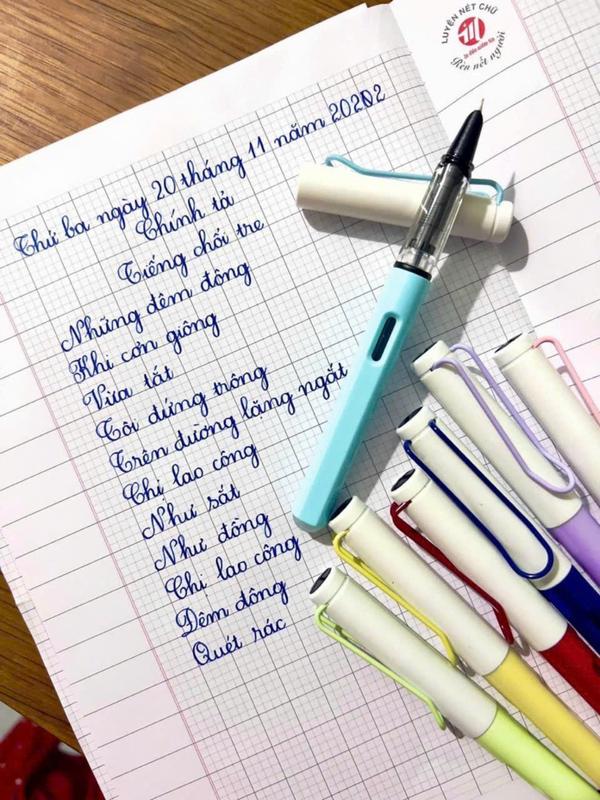 LUYỆN NÉT CHỮ
Rèn nết người
Thứ ba ngày 20 tháng 11 năm 20202
Chính tả
Tiếng chổi tre
Những đêm đông
Khi cơn giông
Vừa tắt
Tôi đứng trông
Trên đường lặng ngắt
Chị lao công
Như sắt
Như đồng
Chị lao công
Đêm đông
Quét rác